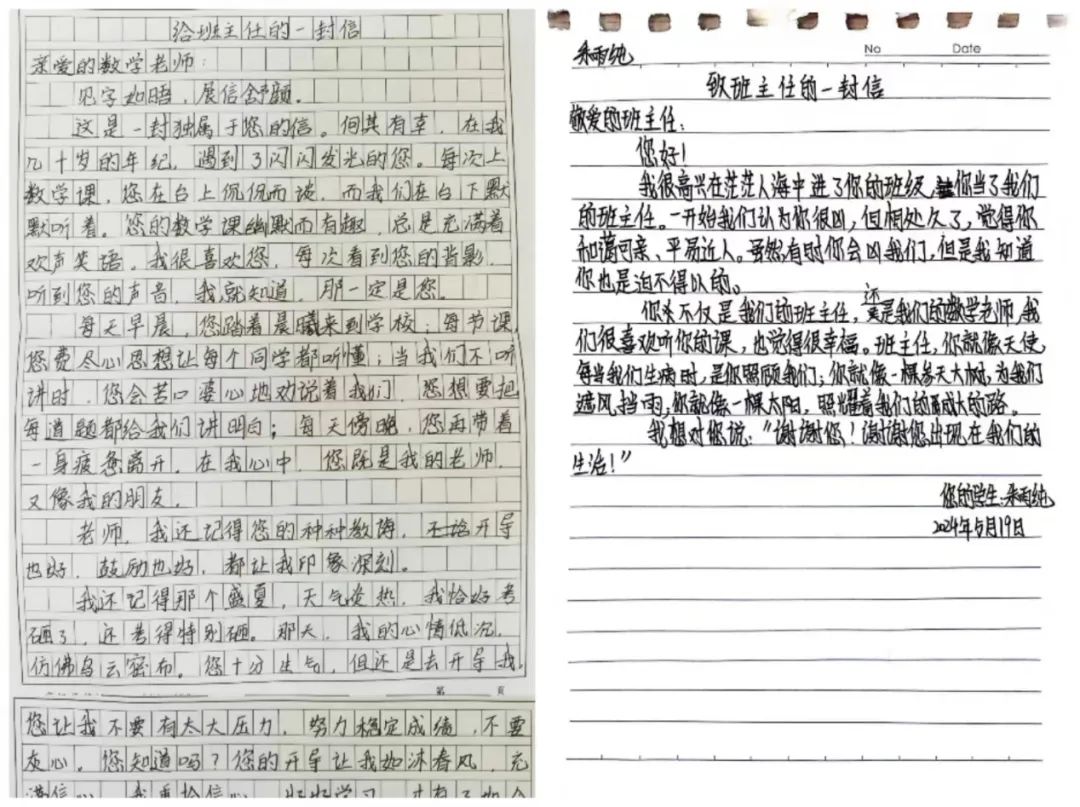 给班主任的一封信
亲爱的数学老师:
见字如晤,展信舒颜。
这是一封独属于您的信。何其有幸,在我
几十岁的年纪,遇到了闪闪发光的您。每次上
数学课,您在台上侃侃而谈,而我们在台下默
默听着。您的数学课幽默而有趣,总是充满着
欢声笑语。我很喜欢您,每次看到您的背影,
听到您的声音,我就知道,那一定是您。
每天早晨,您踏着晨曦来到学校;每节课,
您费尽心思想让每个同学都听懂;当我们不听
讲时,您会苦口婆心地劝说着我们,您想要把
每道题都给我们讲明白;每天傍晚,您再带着
一身疲惫离开。在我心中,您既是我的老师,
又像我的朋友。
老师,我还记得您的种种教诲,开导
也好,鼓励也好,都让我印象深刻。
我还记得那个盛夏,天气炎热,我恰好考
砸了,还考得特别砸。那天,我的心情低沉,
仿佛乌云密布。您十分生气,但还是去开导我,
第 页
您让我不要有太大压力,努力稳定成绩,不要
灰心。您知道吗?您的开导让我如沐春风,充
满信心,我重拾信心,好好学习,才有了如今
No Date
朱雨纯
致班主任的一封信
敬爱的班主任:
您好!
我很高兴在茫茫人海中进了你的班级,你当了我们
的班主任。一开始我们认为你很凶,但相处久了,觉得你
和蔼可亲、平易近人。虽然有时你会凶我们,但是我知道
你也是迫不得以的。
你不仅是我们的班主任,还是我们的数学老师,我
们很喜欢听你的课,也觉得很幸福。班主任,你就像天使,
每当我们生病时,是你照顾我们;你就像一棵参天大树,为我们
遮风挡雨,你就像一棵太阳,照耀着我们的成大的路。
我想对您说:“谢谢您!谢谢您出现在我们的
生活!”
您的学生:朱雨纯
2024年5月19日